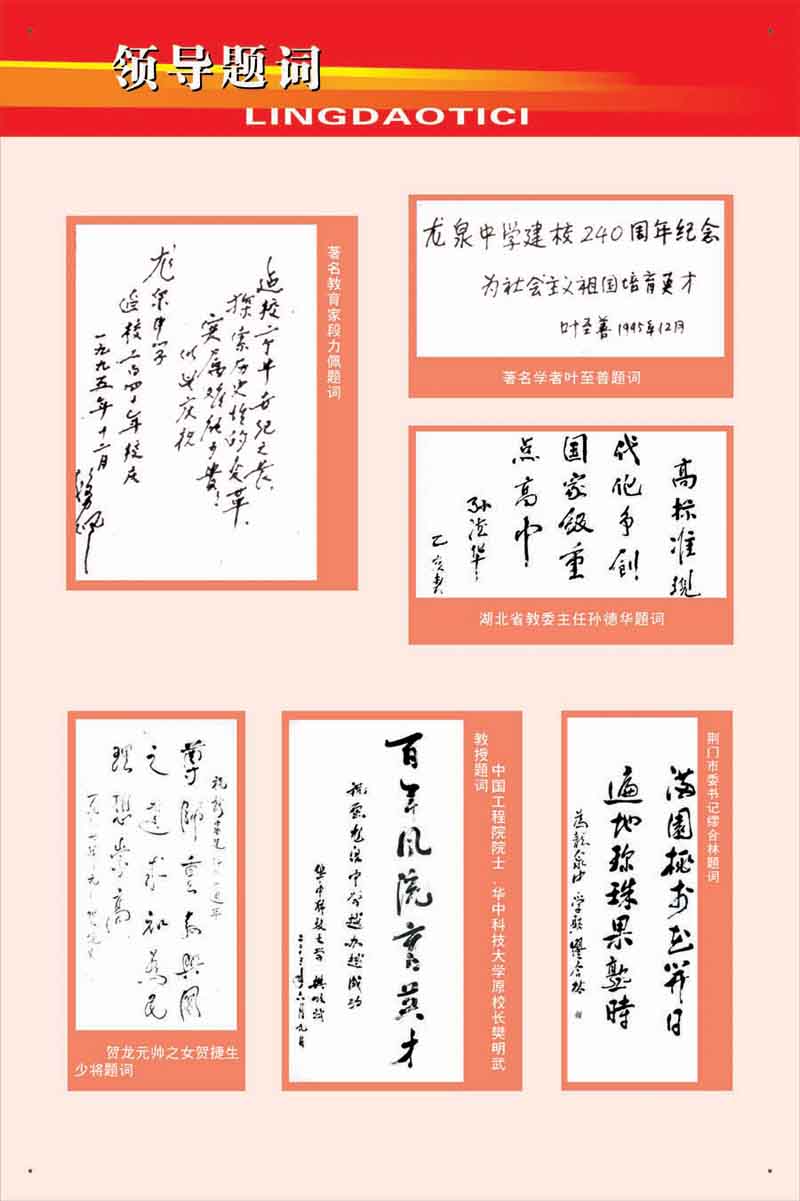 领导题词
LINGDAOTICI
著名教育家段力佩题词
建校二个半世纪之长，
探索历史性的变革，
实属难能可贵！
以此庆祝
龙泉中学
建校二百四十年校庆
一九九五年十二月
龙泉中学建校240周年纪念
为社会主义祖国培育英才
叶至善 1995年12月
著名学者叶至普题词
高标准现
代化争创
国家级重
点高中
孙德华
乙亥
湖北省教委主任孙德华题词
尊师重教兴国
之道求知为民
理想崇高
贺龙元帅之女贺捷生
少将题词
中国工程院院士．华中科技大学原校长樊明武
教授题词
百年风流育英才
龙泉中学越办越成功
华中科技大学 樊明武
二〇〇三年六月九日
荆门市委书记缪合林题词
满园桃李花开日
遍地珍珠果熟时
为龙泉中学题 缪合林